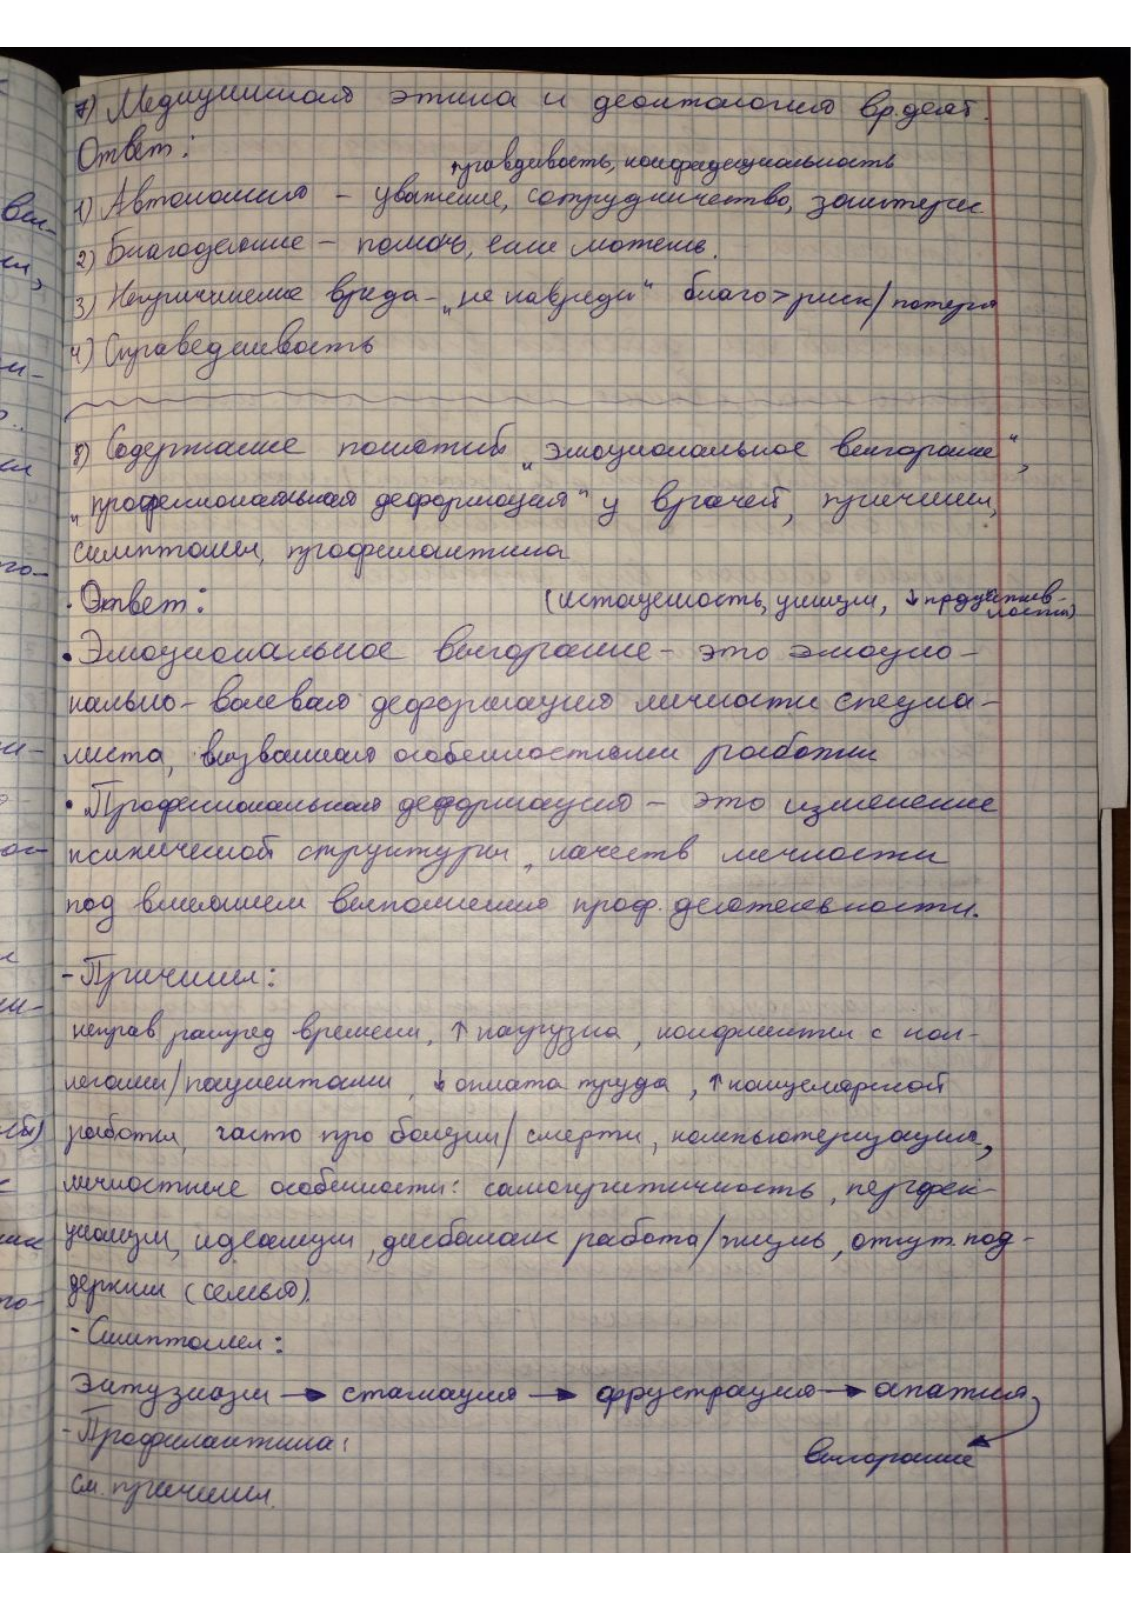 7) Медицинская этика и деонтология вр. деят.
Ответ:
правдивость, конфидециальность
1) Автономия – уважение, сотрудничество,
2) Благодеяние – помочь, если можешь.
3) Непричинение вреда – „не навреди" благо > риск/потеря
4) Справедливость
8) Содержание понятий „эмоциональное выгорание",
„профессиональная деформация" у врачей, причины,
симптомы, профилактика
· Ответ:
(истощенность, цинизм, ↓ продуктив-
ности)
• Эмоциональное выгорание – это эмоцио-
нально-волевая деформация личности специа-
листа, вызванная особенностями работы
• Профессиональная деформация – это изменение
психической структуры, качеств личности
под влиянием выполнения проф. деятельности.
- Причины:
неправ распред времени, ↑ нагрузка, конфликты с кол-
легами/пациентами, ↓ оплата труда, ↑ канцелярской
работы, часто про болезни/смерти, компьютеризация,
личностные особенности: самокритичность, перфек-
ционизм, идеализм, дисбаланс работа/жизнь, отсут. под-
держки (семья).
- Симптомы:
Энтузиазм → стагнация → фрустрация → апатия
выгорание
- Профилактика:
см. причины.